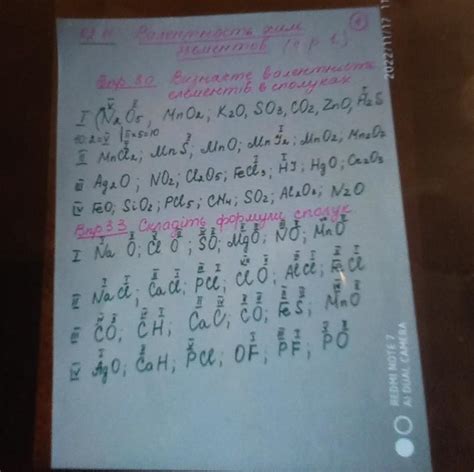 Валентность хим
элементов (9 р 1)
Впр 30 Визначте валентність
елементів в сполуках
I N₂O₅, MnO₂; K₂O, SO₃, CO₂, ZnO, H₂S
10:2=V II×5=10
II MnCl₂; MnS; MnO; MnO₂; Mn₂O₇
III Ag₂O; NO₂; Cl₂O₅; FeCl₃; HI; HgO; Cr₂O₃
IV FeO; SiO₂; PCl₅; CH₄; SO₂; Al₂O₃; N₂O
Впр 33 Складіть формули сполук
I Na O; Cl O; SO; MgO; NO; MnO
II NaCl; CaCl; PCl; ClO; AlCl; FeCl
III CO; CH; CaC; CO; FeS; MnO
IV AgO; CaH; PCl; OF; PF; PO
2022/11/17
REDMI NOTE 7
AI DUAL CAMERA